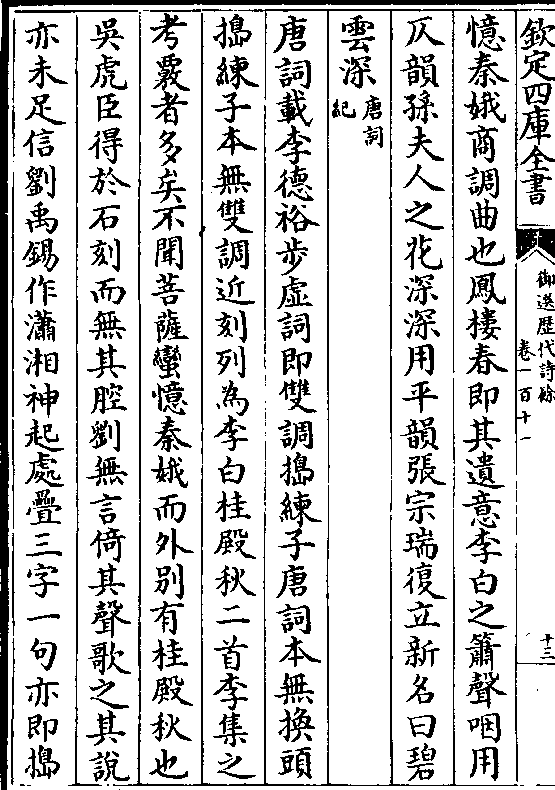 欽定四庫全書
御選歷代詩餘
卷一百十一
十三
憶秦娥商調曲也鳳樓春即其遺意李白之簫聲咽用
仄韻孫夫人之花深深用平韻張宗瑞復立新名曰碧
雲深唐詞紀
唐詞載李德裕步虛詞即雙調搗練子唐詞本無換頭
搗練子本無雙調近刻列為李白桂殿秋二首李集之
考覈者多矣不聞菩薩蠻憶秦娥而外別有桂殿秋也
吳虎臣得於石刻而無其腔劉無言倚其聲歌之其說
亦未足信劉禹錫作瀟湘神起處疊三字一句亦即搗